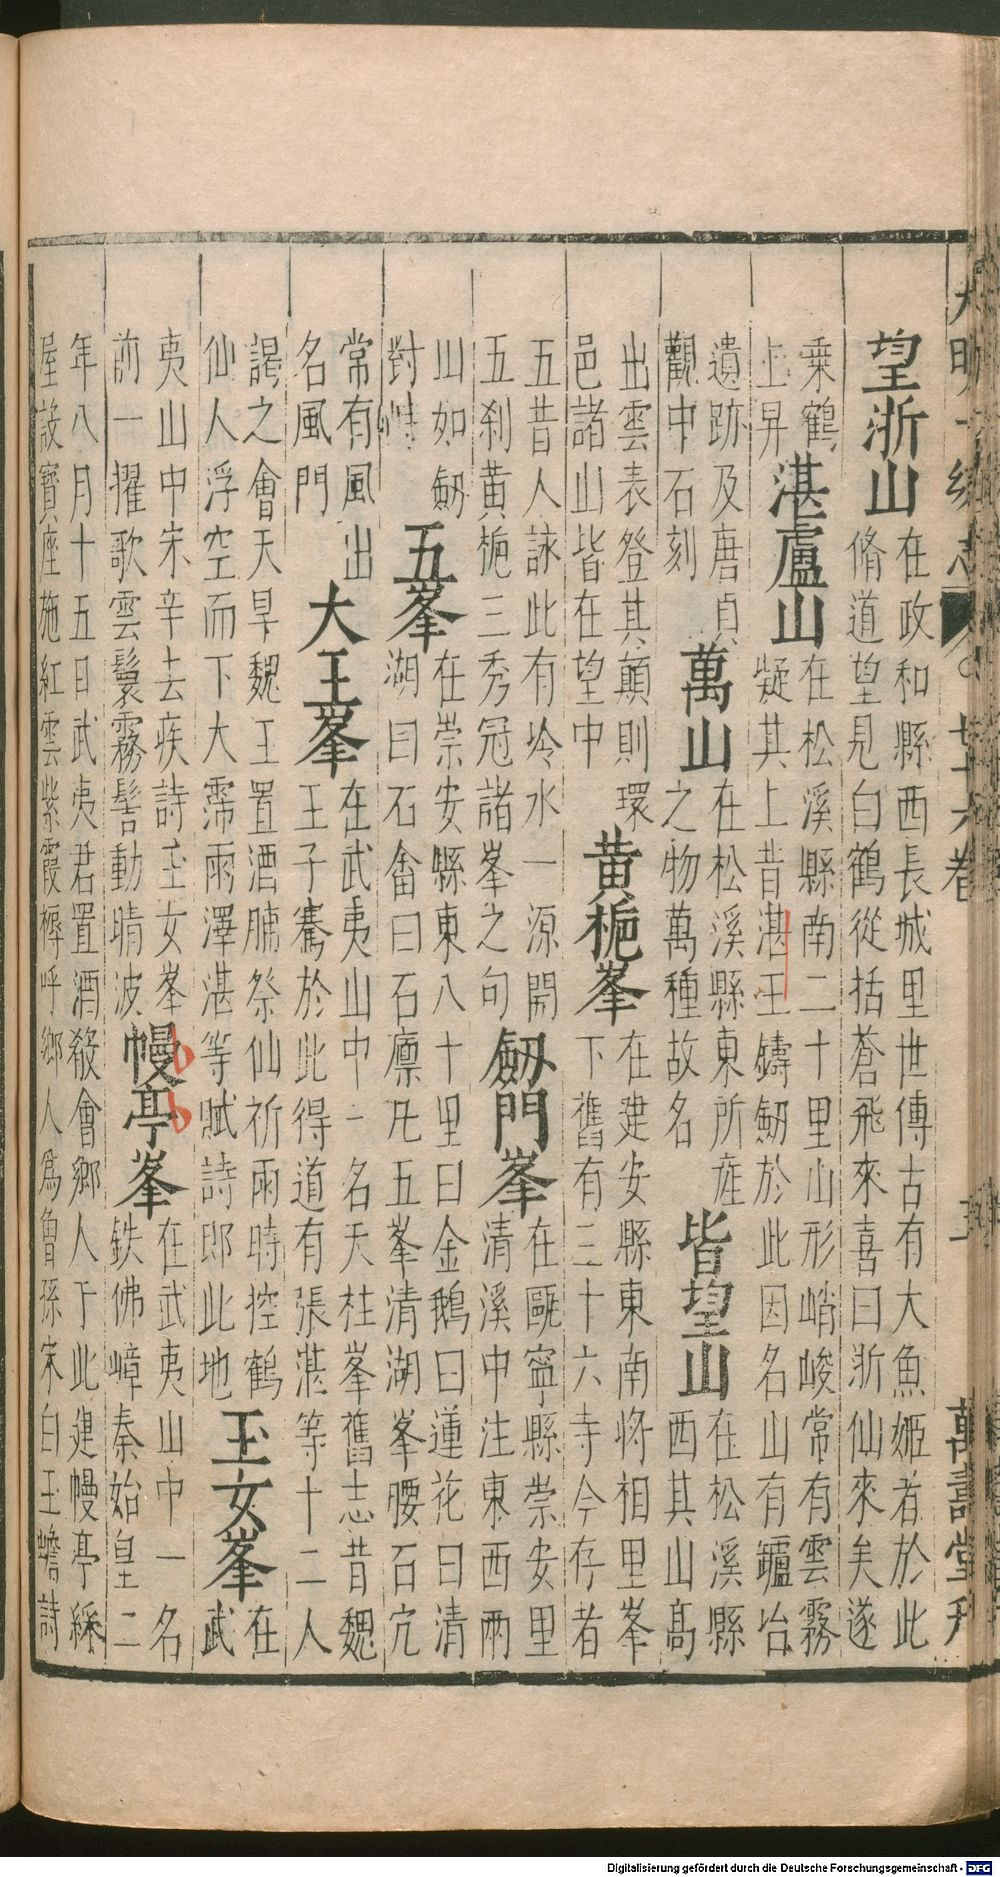 大明一統志 七十六卷 五 萬壽堂刊
望浙山 在政和縣西長城里世傳古有大魚姬者於此
脩道望見白鶴從括蒼飛來喜曰浙仙來矣遂
乗鶴上昇 湛盧山 在松溪縣南二十里山形峭峻常有雲霧
疑其上昔湛王鑄劒於此因名山有鑪冶
遺跡及唐貞觀中石刻 萬山 在松溪縣東所産之物萬種故名 皆望山 在松溪縣西其山髙
出雲表登其顛則環邑諸山皆在望中 黄梔峯 在建安縣東南將相里峯下舊有三十六寺今存者
五昔人詠此有坽水一源開五刹黄梔三秀冠諸峯之句 劒門峯 在甌寧縣崇安里清溪中注東西兩
山如劒對峙 五峯 在崇安縣東八十里曰金鵝曰蓮花曰清湖曰石畬曰石廪凡五峯清湖峯腰石穴
常有風出名風門 大王峯 在武夷山中一名天柱峯舊志昔魏王子騫於此得道有張湛等十二人
謁之會天旱魏王置酒脯祭仙祈雨時控鶴仙人浮空而下大霈雨澤湛等賦詩郎此地 玉女峯 在武
夷山中宋辛去疾詩玉女峯前一擢歌雲鬟霧髻動晴波 幔亭峯 在武夷山中一名鉄佛嶂秦始皇二
年八月十五日武夷君置酒殽會鄉人于此建幔亭綵
屋設寳座施紅雲紫霞褥呼鄉人爲曾孫宋白玉蟾詩
Digitalisierung gefördert durch die Deutsche Forschungsgemeinschaft - DFG